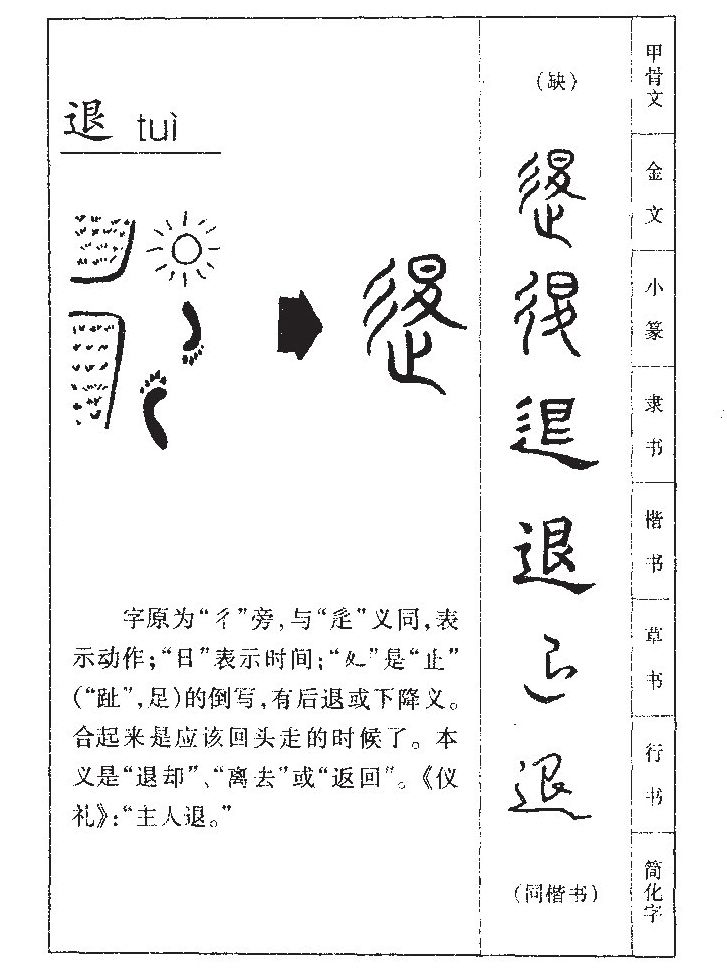 退 tuì
字原为“彳”旁,与“辵”义同,表
示动作;“日”表示时间;“夂”是“止”
(“趾”,足)的倒写,有后退或下降义。
合起来是应该回头走的时候了。本
义是“退却”、“离去”或“返回”。《仪
礼》:“主人退。”
(缺)
甲骨文
金文
小篆
退
隶书
退
楷书
草书
退
行书
(同楷书)
简化字